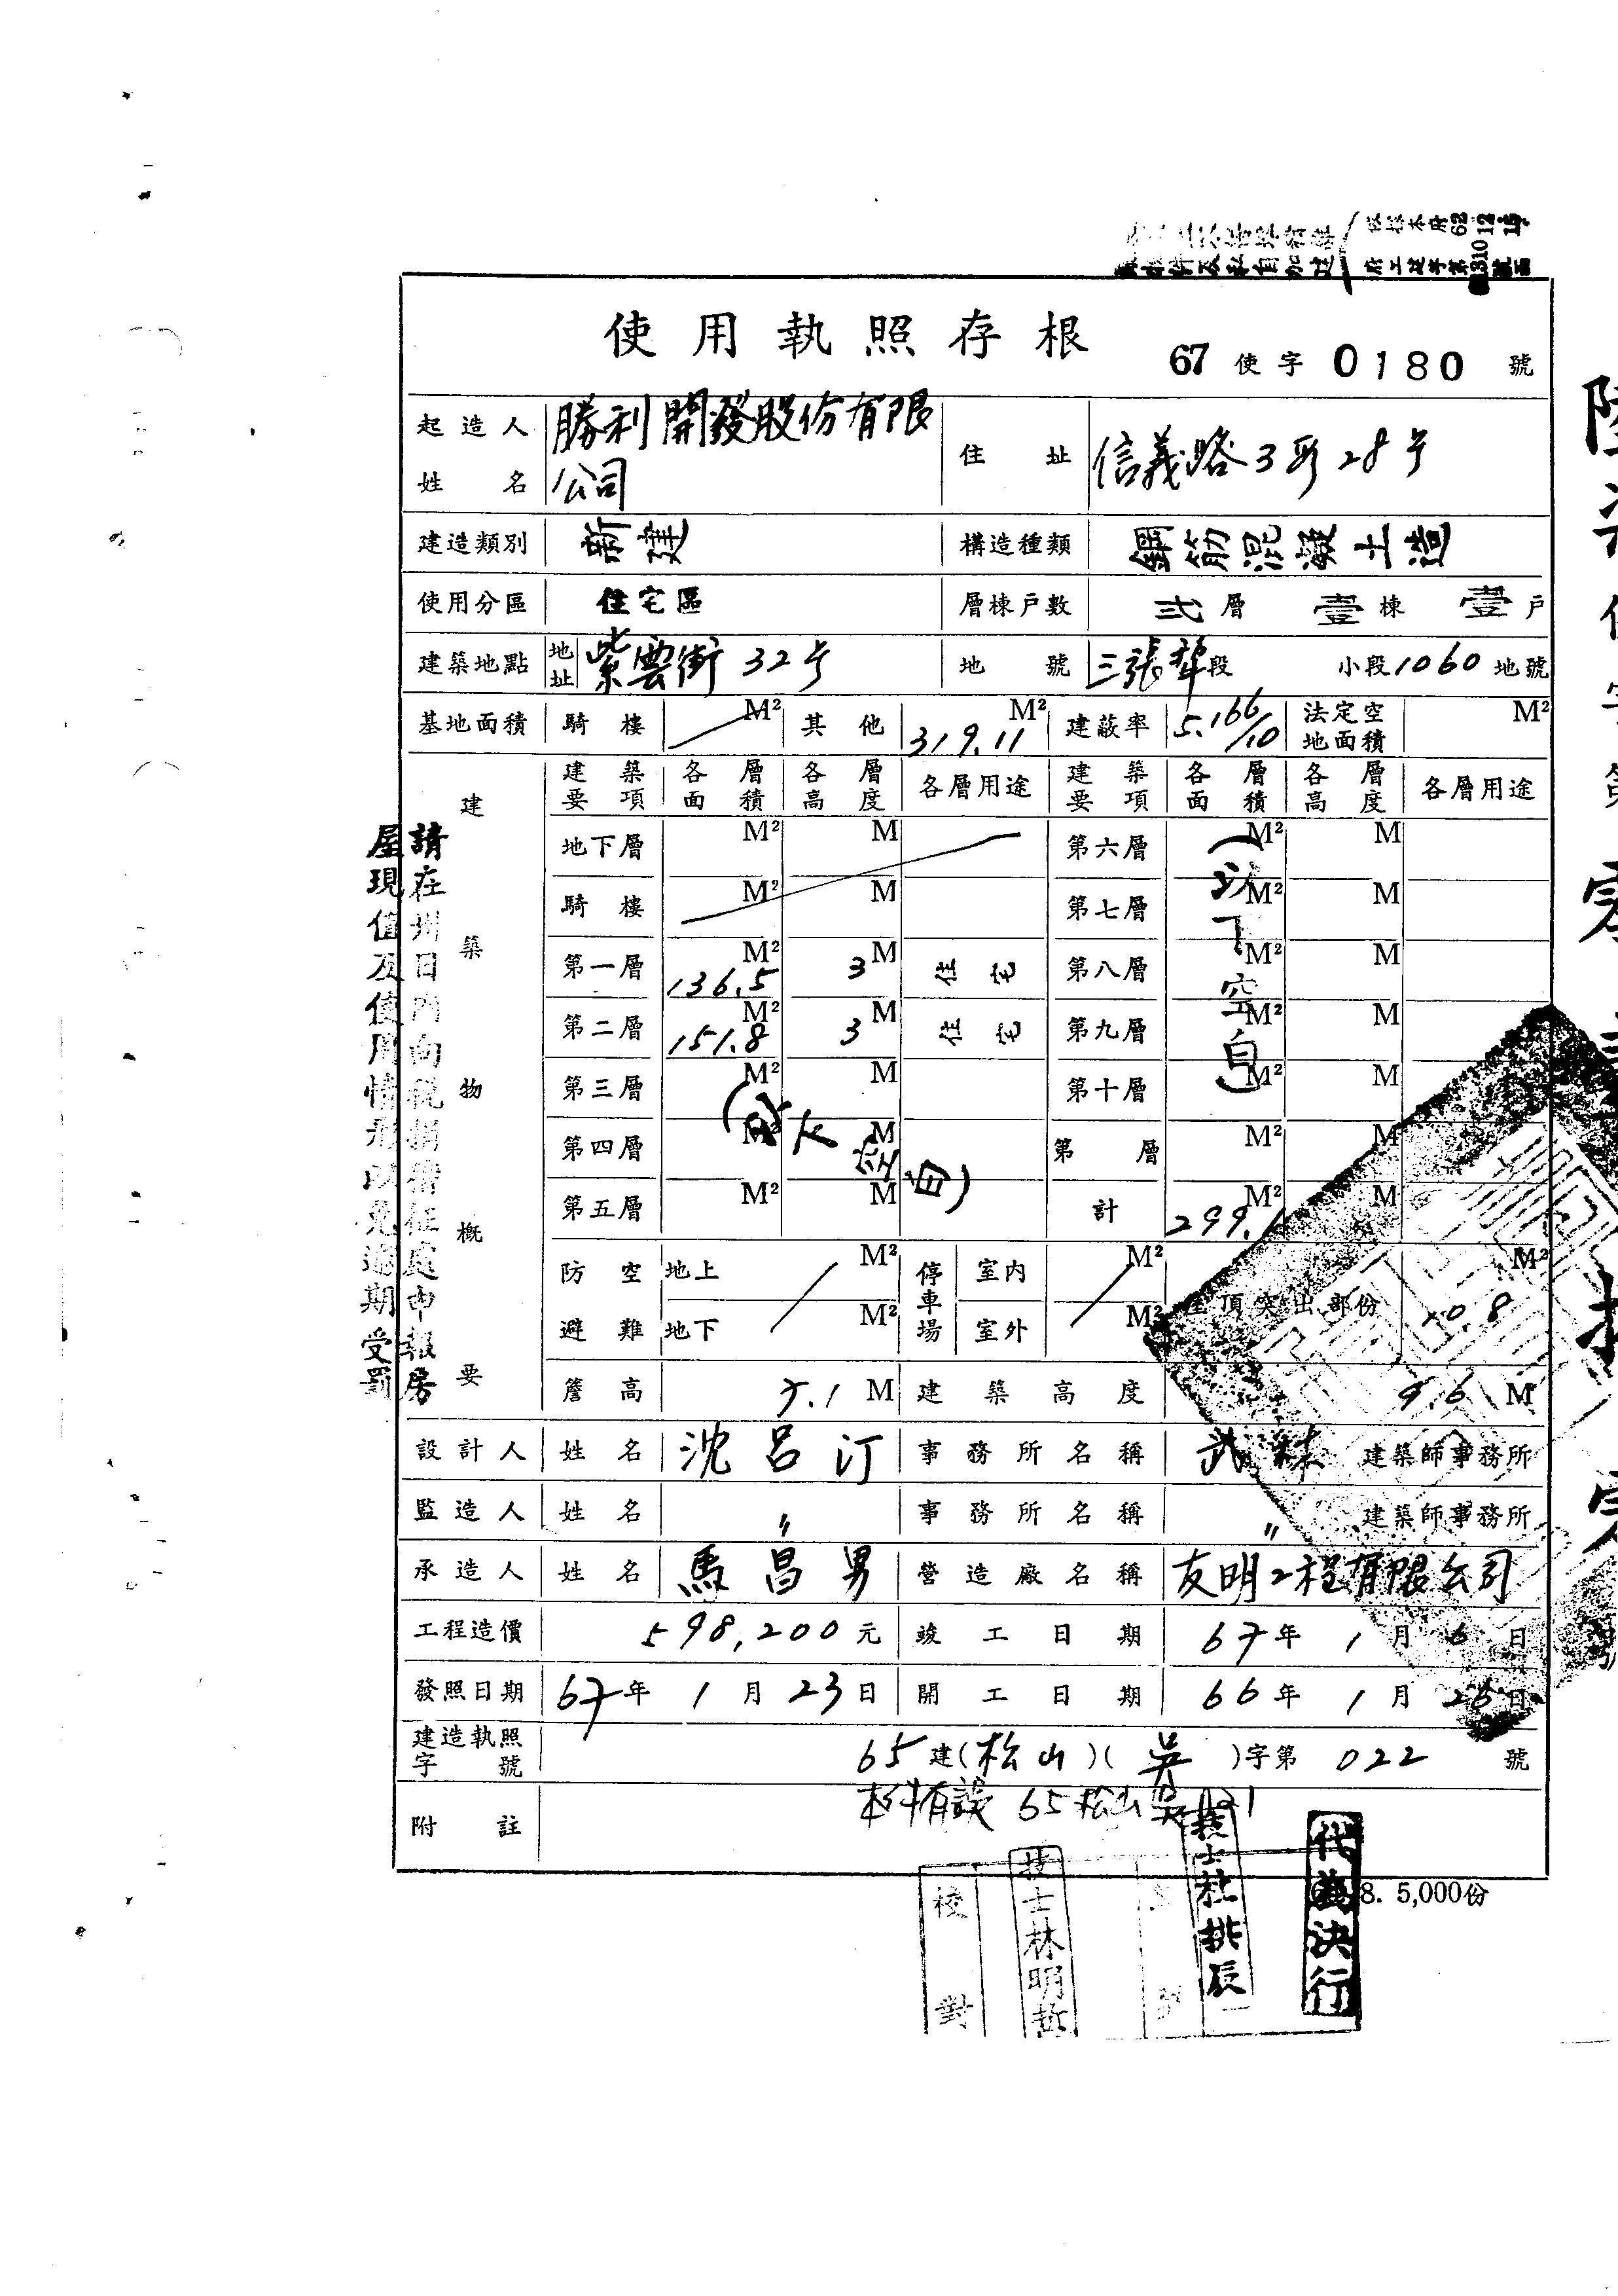 依據本府62 12 15
府工建字第 310 號函
使用執照存根
67 使字 0180 號
起造人姓名 勝利開發股份有限公司 住址 信義路3段28号
建造類別 新建 構造種類 鋼筋混凝土造
使用分區 住宅區 層棟戶數 弍層 壹棟 壹戶
建築地點 地址 紫雲街32号 地號 三張犂段 小段1060地號
基地面積 騎樓 M² 其他 319.11 M² 建蔽率 5.166/10 法定空地面積 M²
建築物概要
建築要項 各層面積 各層高度 各層用途 建築要項 各層面積 各層高度 各層用途
地下層 M² M 第六層 M² M
騎樓 M² M 第七層 M² M
第一層 136.5 M² 3 M 住宅 第八層 M² M
第二層 151.8 M² 3 M 住宅 第九層 M² M
第三層 M² M 第十層 M² M
第四層 M² M 第 層 M² M
第五層 M² M 計 299.1 M² M
(以下空白)
(以下空白)
防空避難 地上 M² 停車場 室內 M² 屋頂突出部份 10.8 M²
地下 M² 室外 M²
簷高 7.1 M 建築高度 9.6 M
設計人 姓名 沈呂汀 事務所名稱 武林 建築師事務所
監造人 姓名 〃 事務所名稱 〃 建築師事務所
承造人 姓名 馬昌男 營造廠名稱 友明工程有限公司
工程造價 598,200元 竣工日期 67年1月6日
發照日期 67年1月23日 開工日期 66年1月25日
建造執照字號 65建(松山)(吳)字第022號
附註
請在卅日內向稅捐稽征處申報房
屋現值及使用情形以免逾期受罰
8. 5,000份
代為決行
校對
技士林明哲